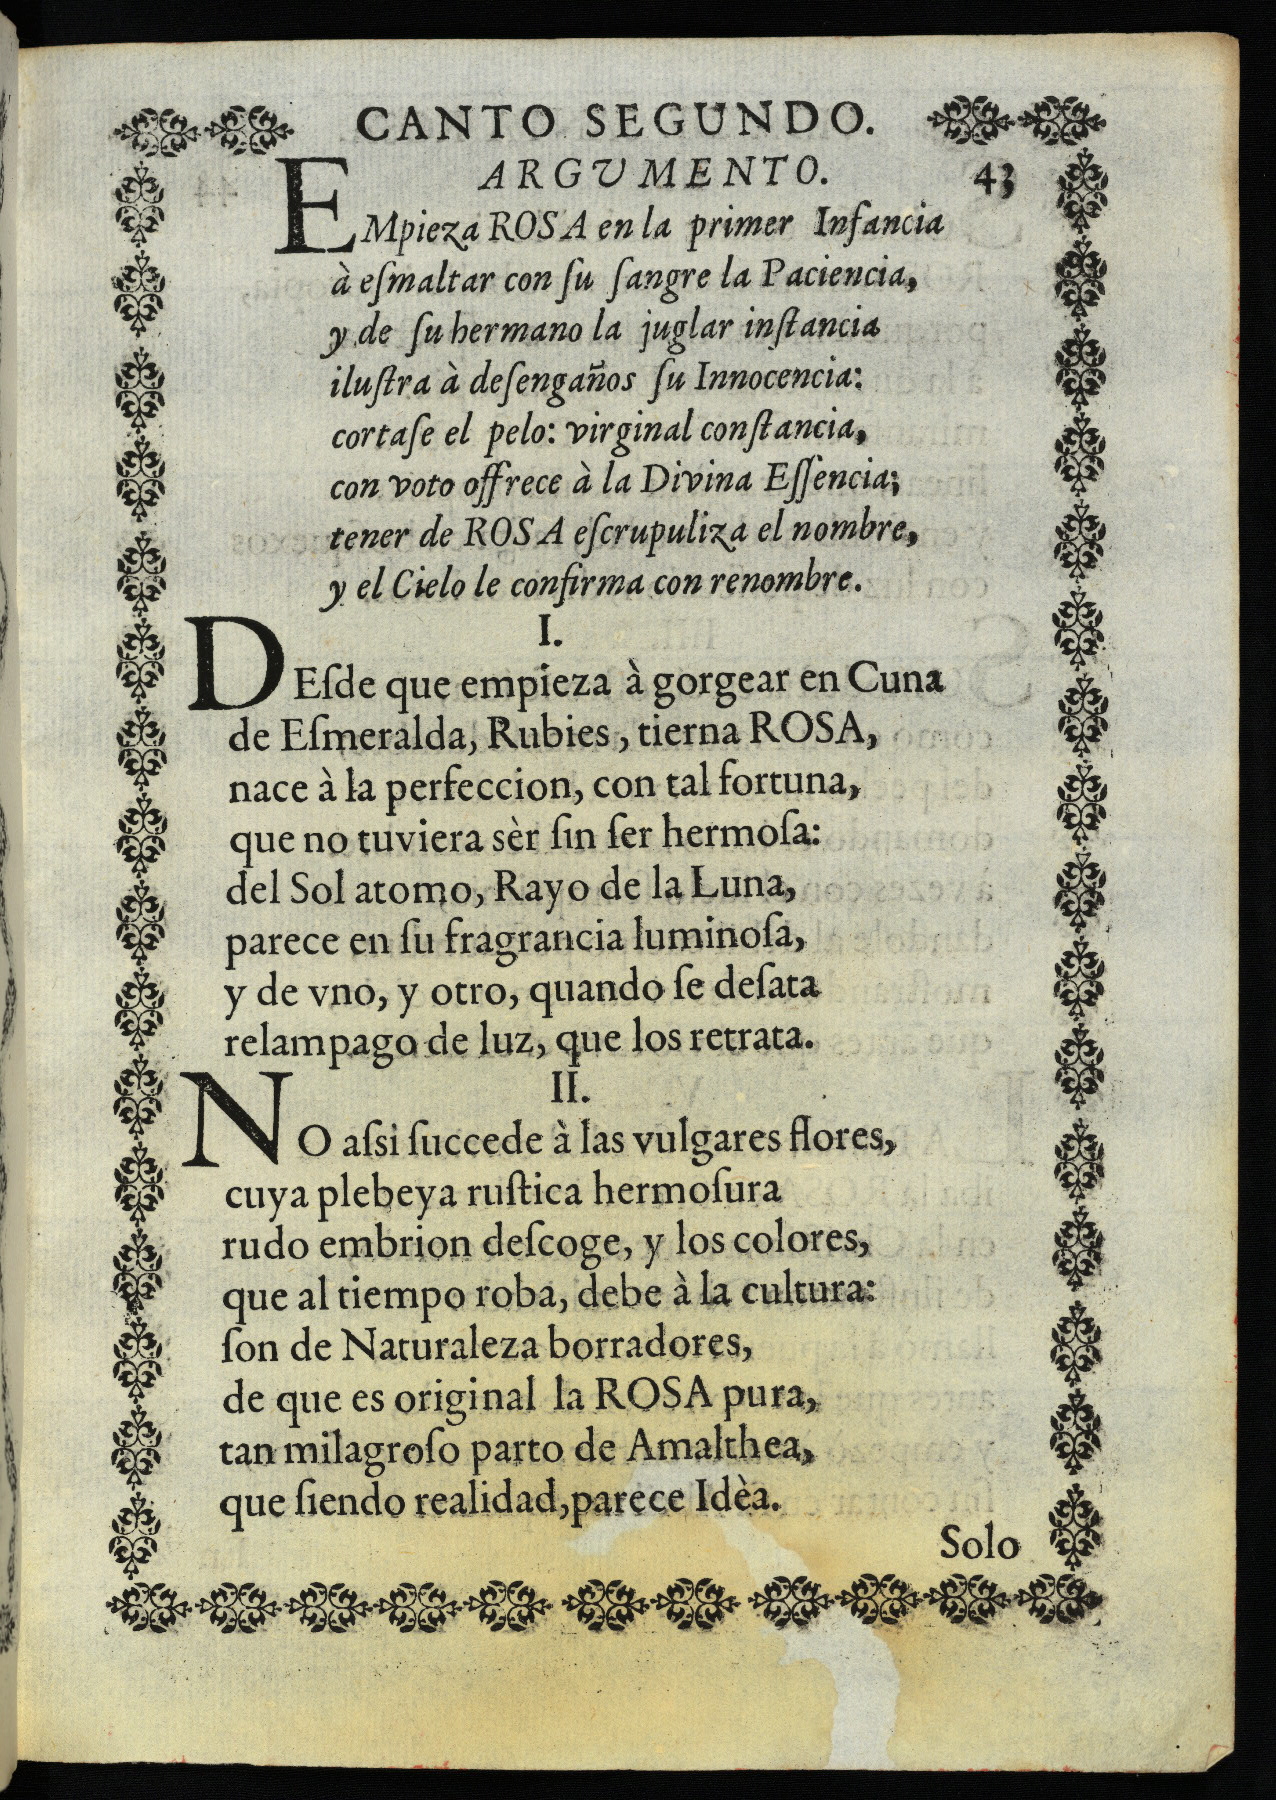 CANTO SEGUNDO.
ARGUMENTO. 43
EMpieza ROSA en la primer Infancia
à eſmaltar con ſu ſangre la Paciencia,
y de ſu hermano la juglar inſtancia
iluſtra à deſengaños ſu Innocencia:
cortaſe el pelo: virginal conſtancia,
con voto offrece à la Divina Eſſencia;
tener de ROSA eſcrupuliza el nombre,
y el Cielo le confirma con renombre.
I.
DEſde que empieza à gorgear en Cuna
de Eſmeralda, Rubies, tierna ROSA,
nace à la perfeccion, con tal fortuna,
que no tuviera sèr ſin ſer hermoſa:
del Sol atomo, Rayo de la Luna,
parece en ſu fragrancia luminoſa,
y de vno, y otro, quando ſe deſata
relampago de luz, que los retrata.
II.
NO aſsi ſuccede à las vulgares flores,
cuya plebeya ruſtica hermoſura
rudo embrion deſcoge, y los colores,
que al tiempo roba, debe à la cultura:
ſon de Naturaleza borradores,
de que es original la ROSA pura,
tan milagroſo parto de Amalthea,
que ſiendo realidad, parece Idèa.
Solo